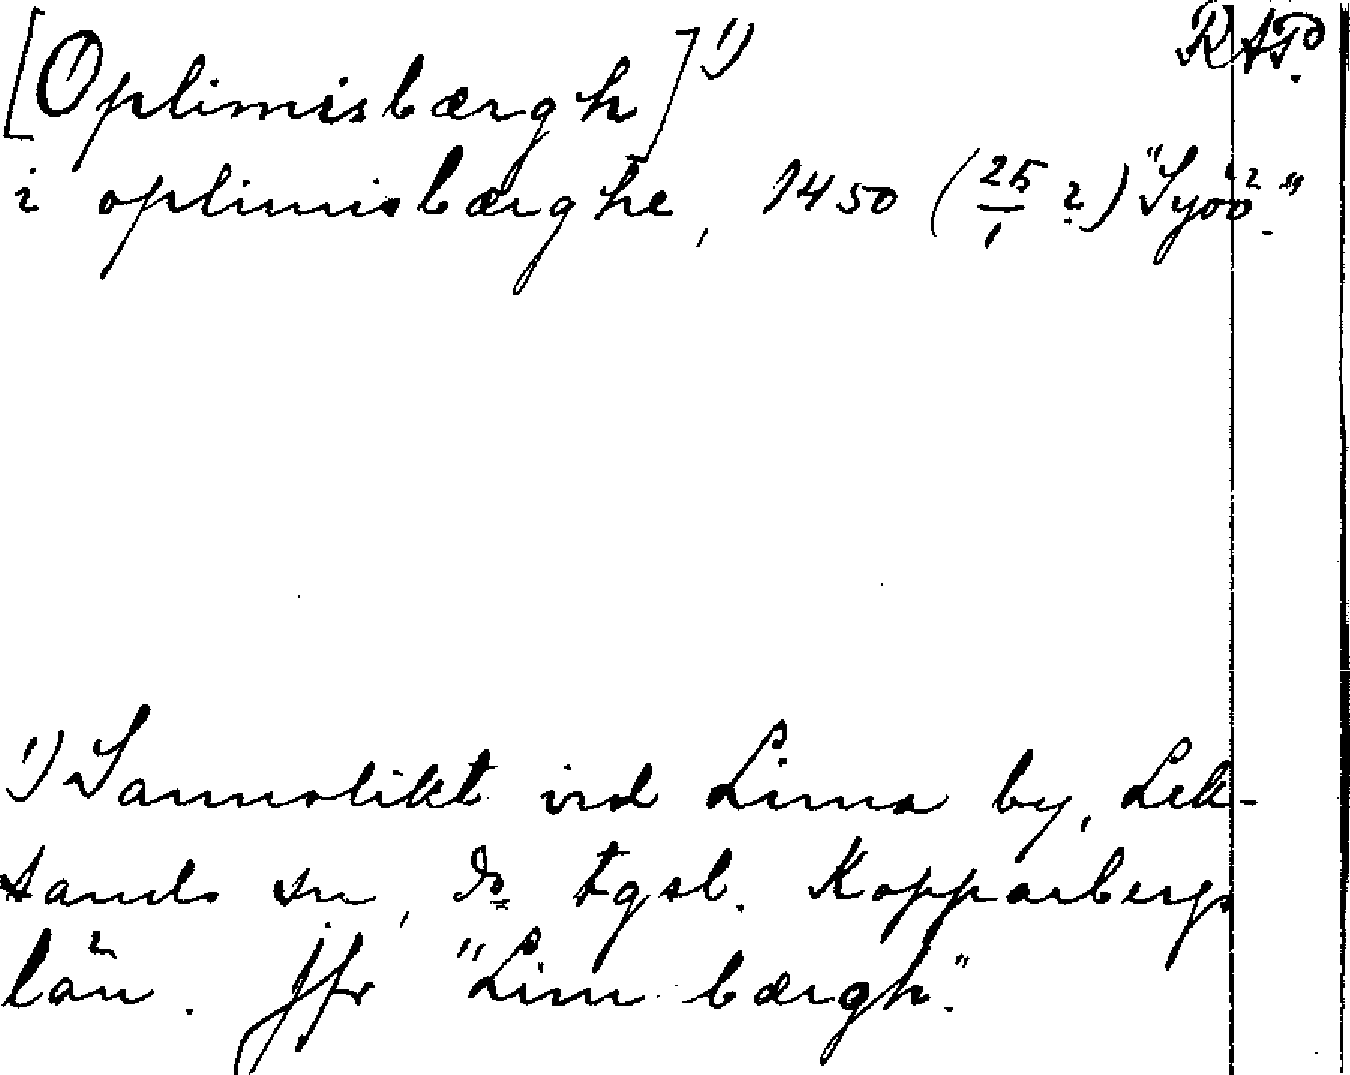 [Oplimisbærgh]¹⁾ RAP.
i oplimisbærghe, 1450 (25/1 ?) "Syöö"
¹⁾ Sannolikt vid Lima by, Lek-
sands sn, do tgsl. Kopparbergs
län. Jfr "Limbærgh".